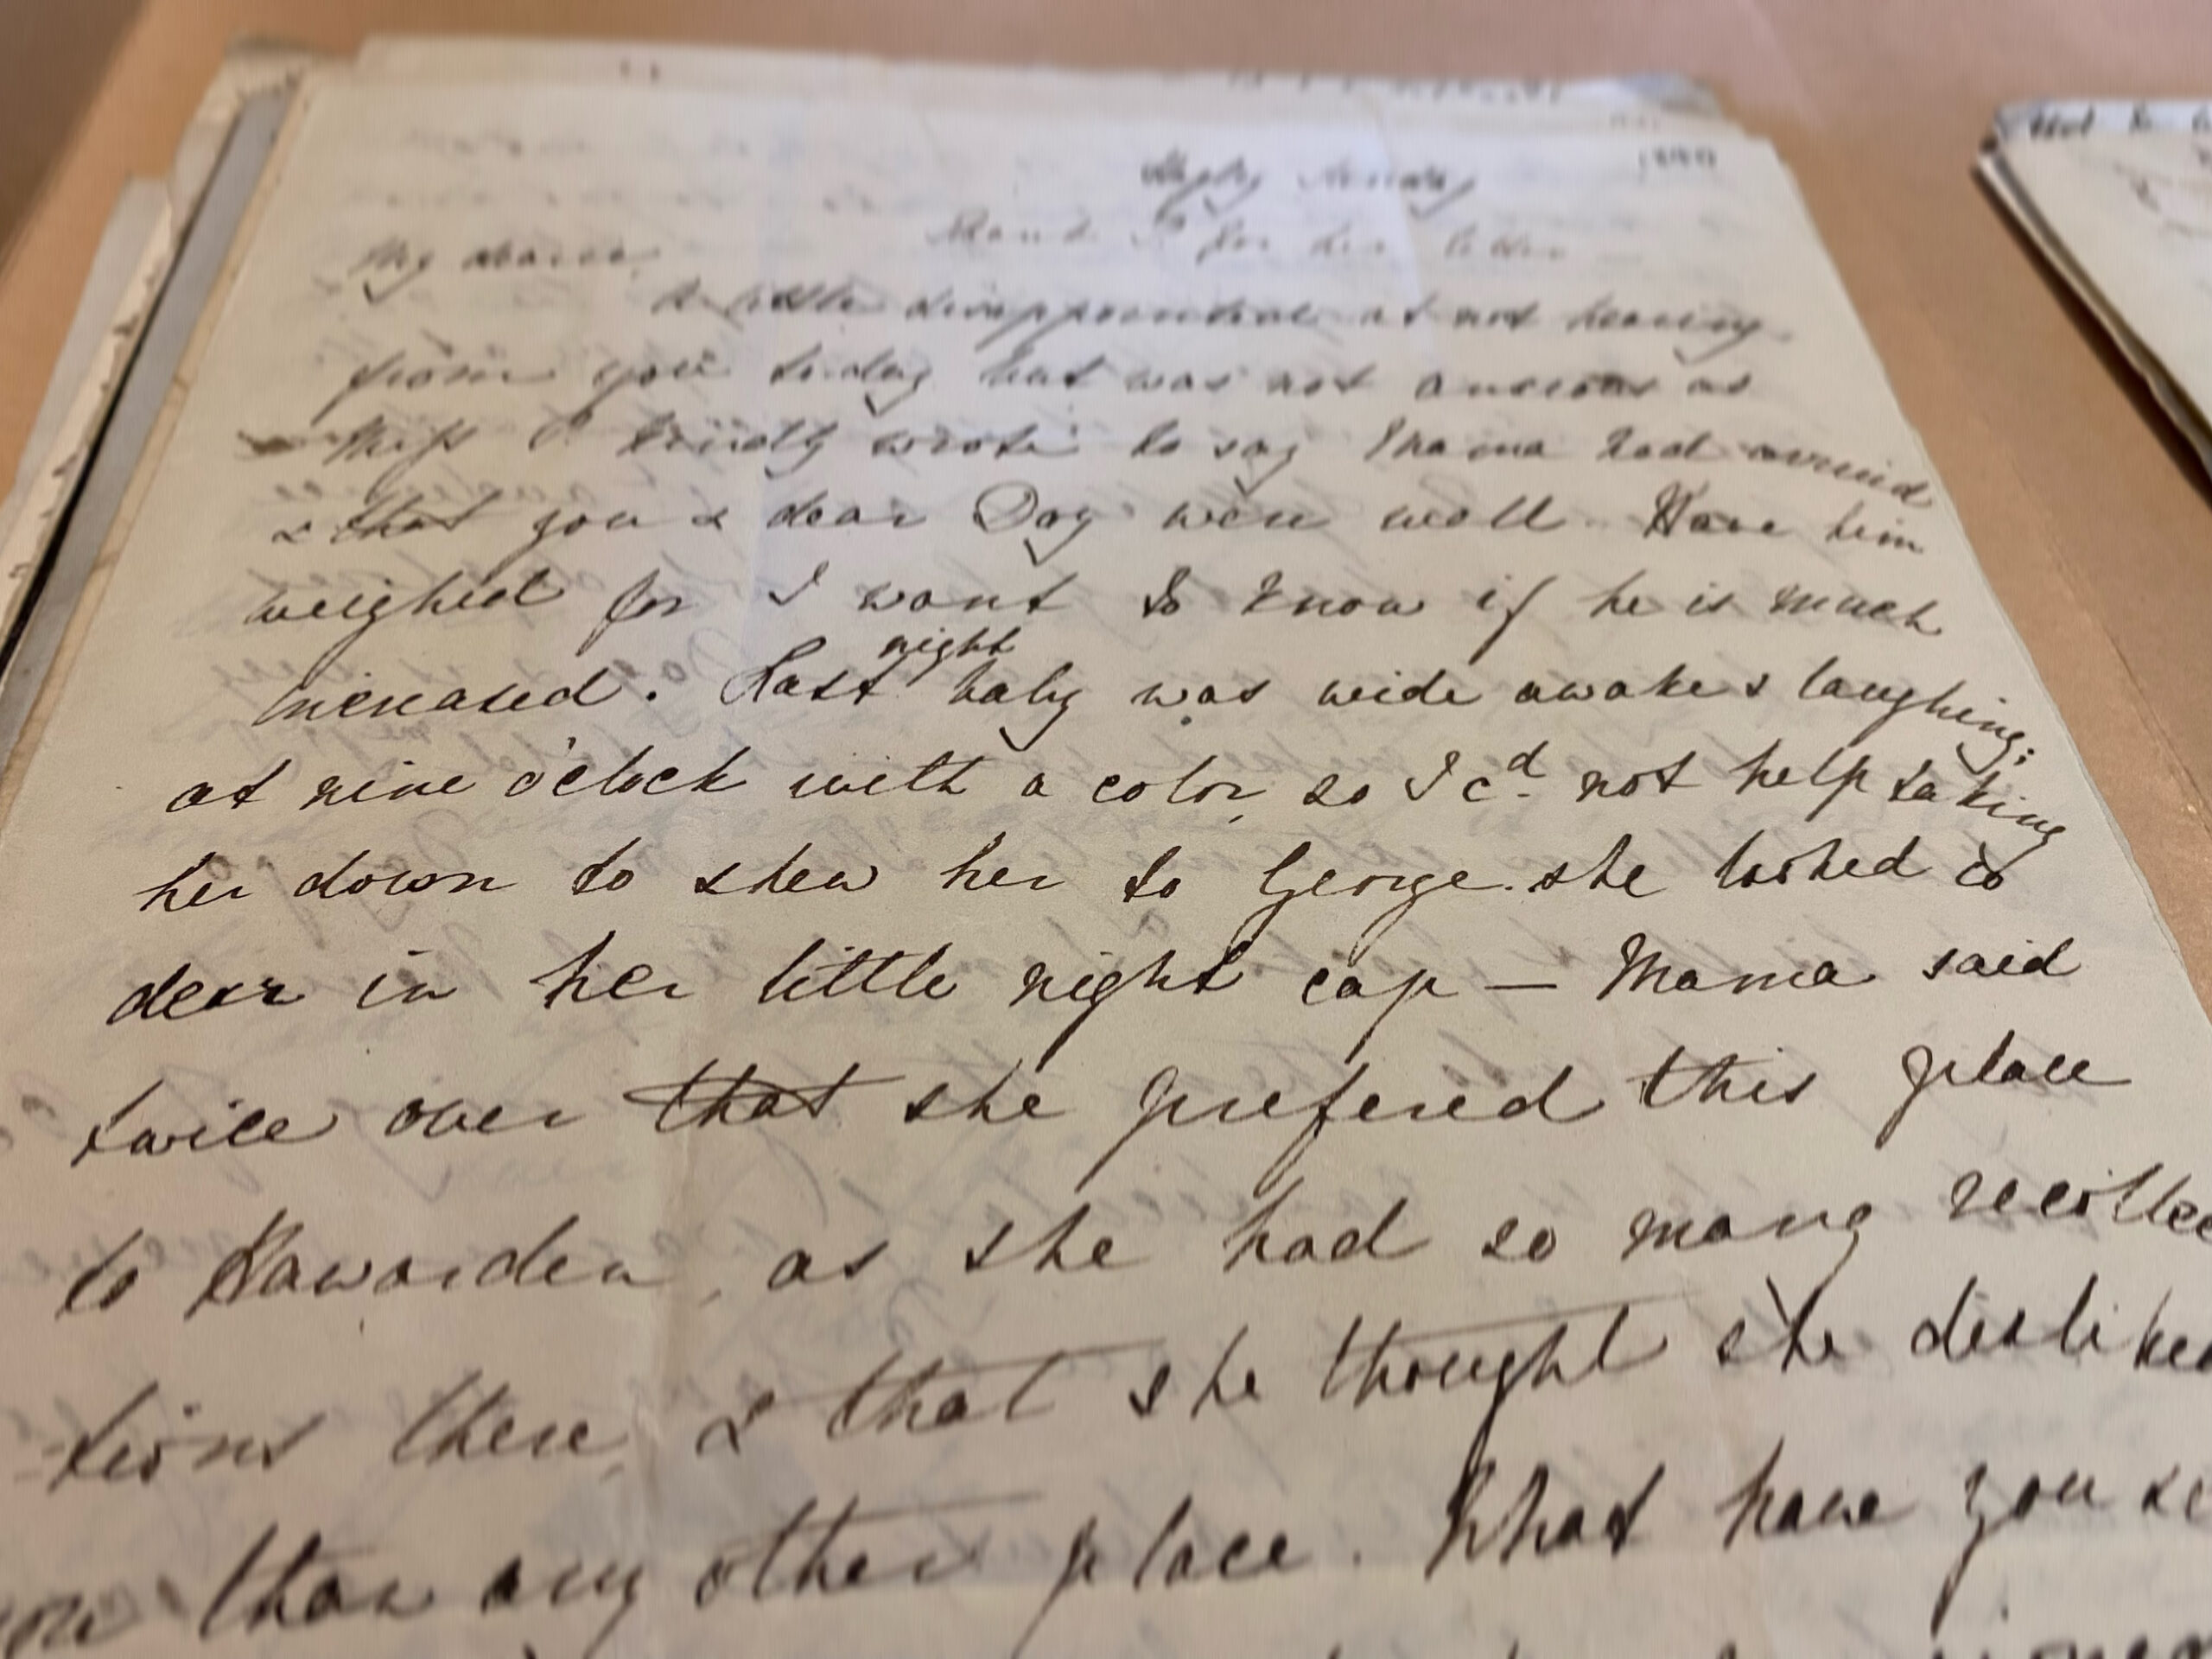 Hagley Sunday
Thank P for her letter —
My dearest
A little disappointed at not hearing
from you today but was not anxious as
Miss P. kindly wrote to say Mama had arrived
& that you & dear Doy were well. Have him
weighed for I want to know if he is much
increased. Last night baby was wide awake & laughing:
at nine o'clock with a color, so I cd. not help taking
her down to shew her to George. she looked so
dear in her little night cap — Mama said
twice over that she prefered this place
to Hawarden, as she had so many recollec
tions there, & that she thought she disliked
than any other place. What have you